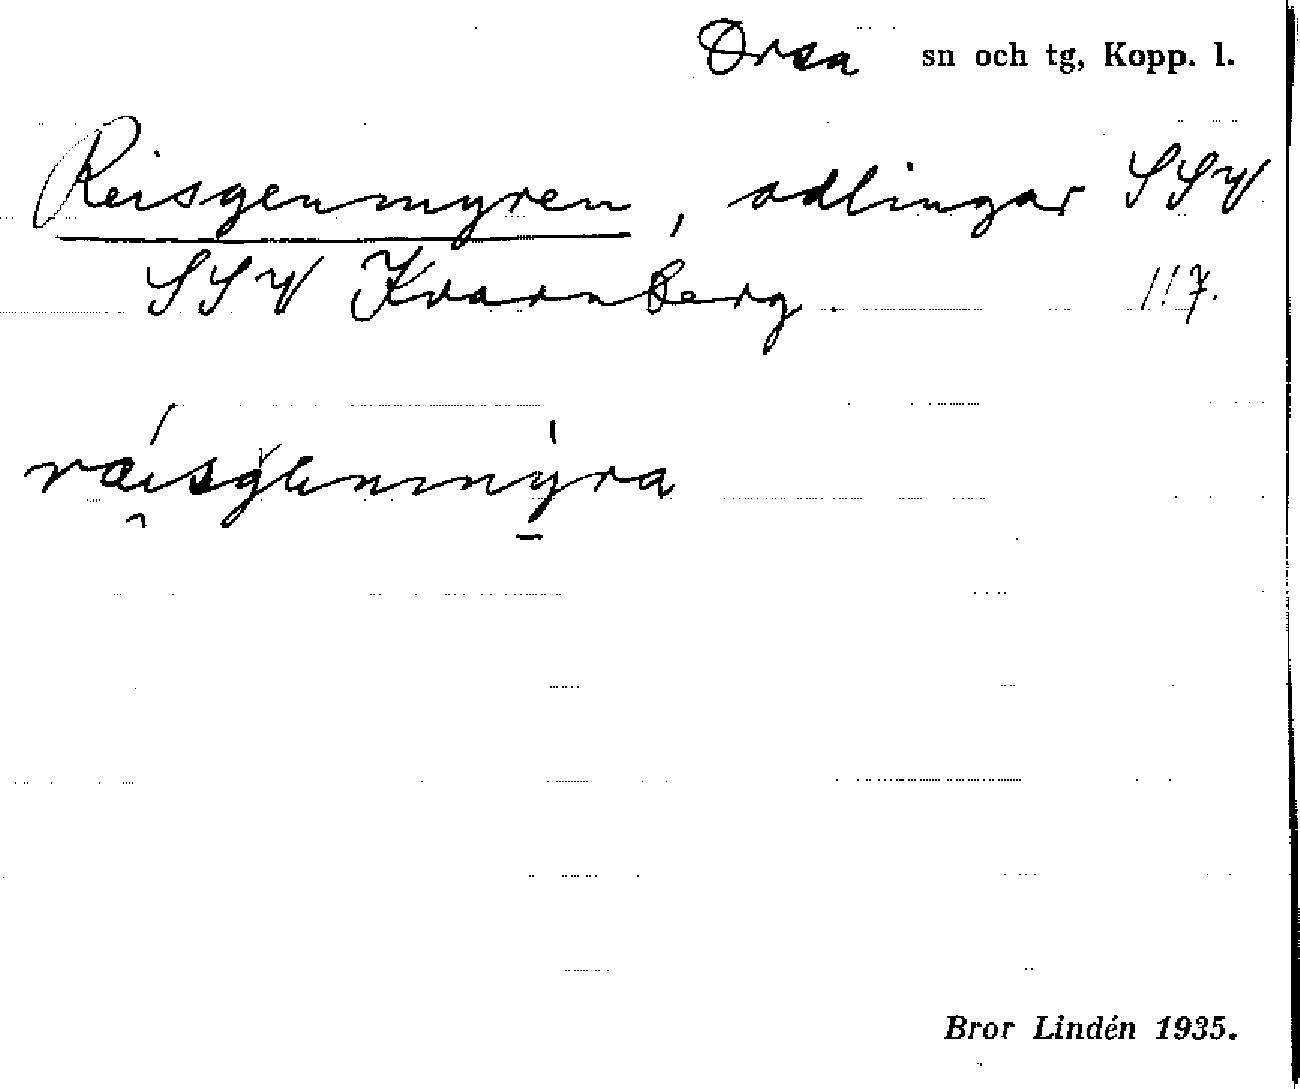 Orsa sn och tg, Kopp. l.
Reisgenmyren, odlingar SSV
SSV Kvarnberg. 117.
ráisgenmýra
Bror Lindén 1935.